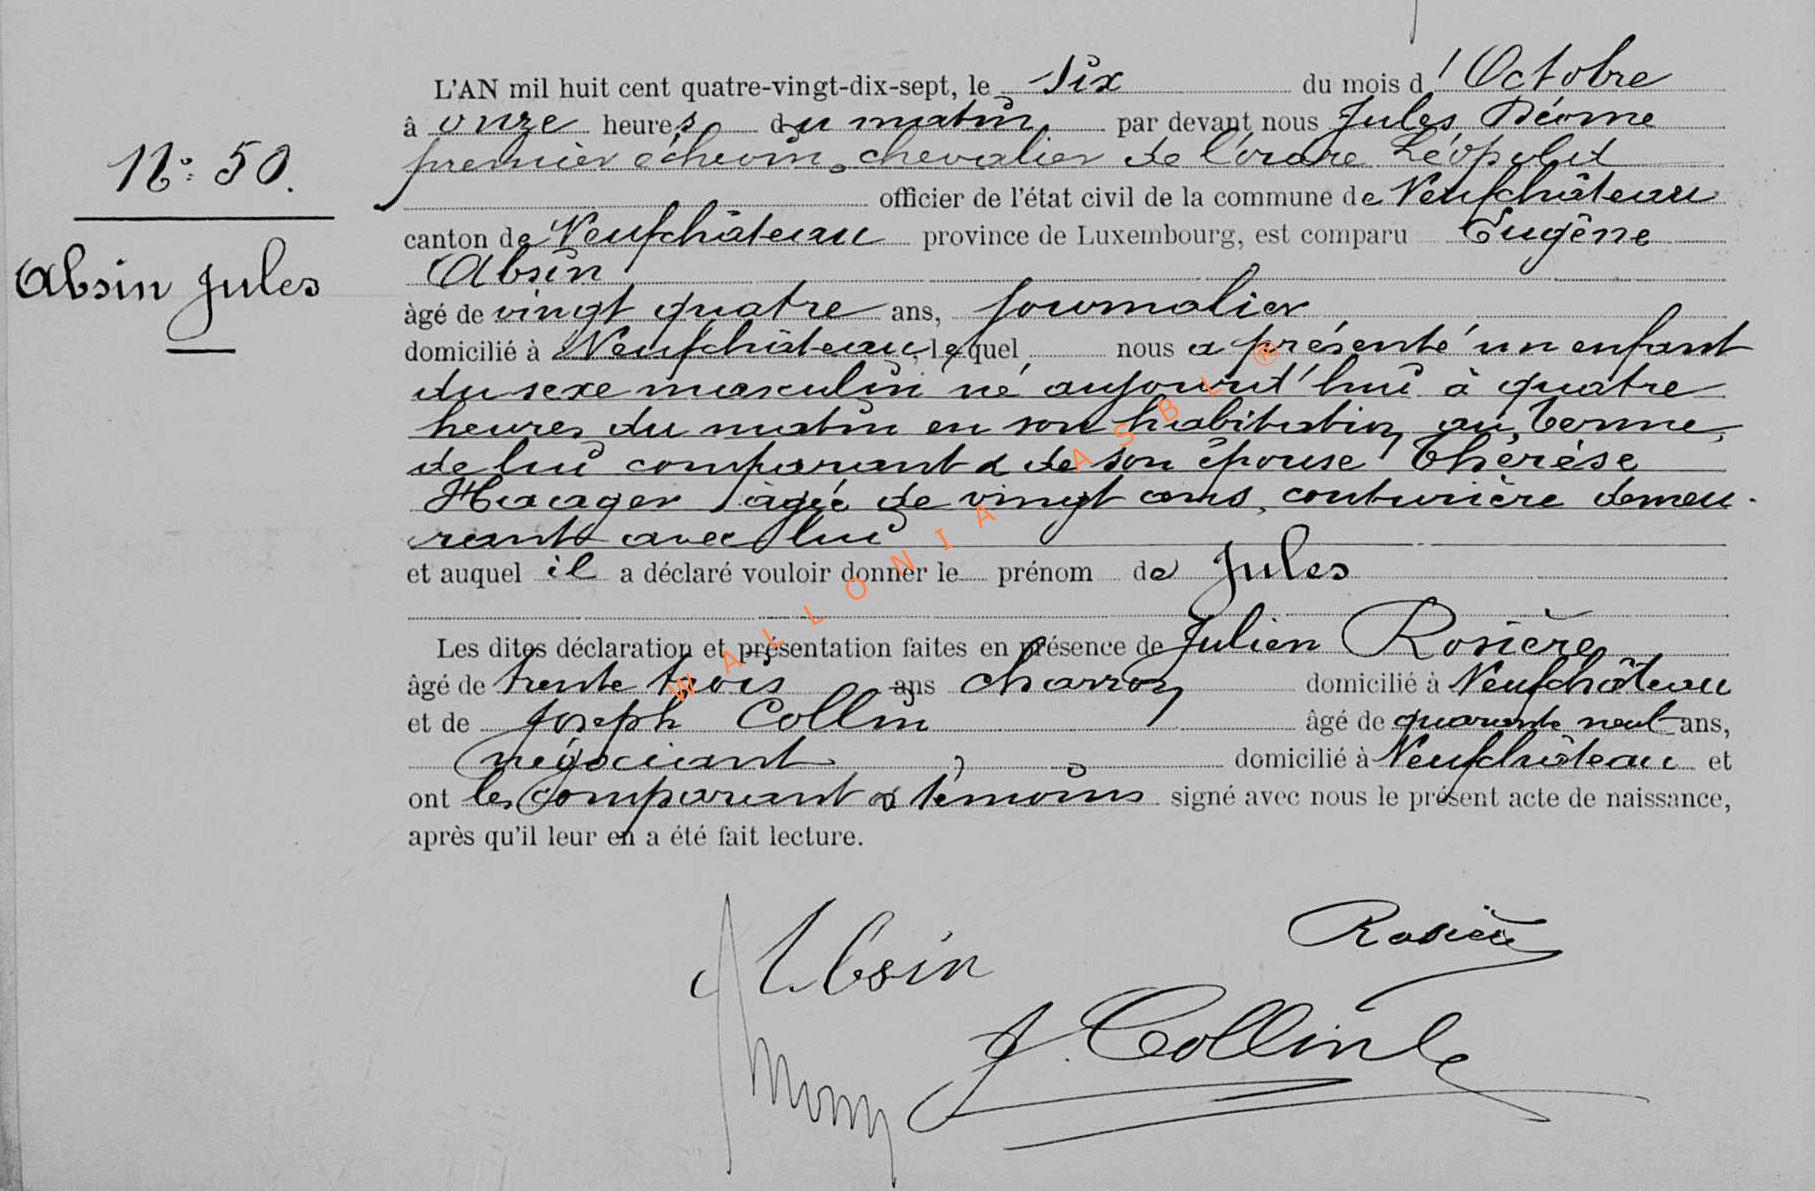 L'AN mil huit cent quatre-vingt-dix-sept, le six du mois d'Octobre
à onze heures du matin par devant nous Jules Déome
N° 50.
premier échevin, chevalier de l'ordre Léopold
officier de l'état civil de la commune de Neufchâteau
canton de Neufchâteau province de Luxembourg, est comparu Eugène
Absin Jules
Absin
âgé de vingt quatre ans, journalier
domicilié à Neufchâteau, lequel nous a présenté un enfant
du sexe masculin né aujourd'hui à quatre
heures du matin en son habitation, au Terme,
de lui comparant & de son épouse Thérèse
âgée de vingt ans, couturière demeu-
rant avec lui
et auquel il a déclaré vouloir donner le prénom de Jules
Les dites déclaration et présentation faites en présence de Julien Rosière
âgé de trente trois ans charron domicilié à Neufchâteau
et de Joseph Collin âgé de quarante neuf ans,
négociant domicilié à Neufchâteau et
ont les comparant & témoins signé avec nous le présent acte de naissance,
après qu'il leur en a été fait lecture.
Absin
Rosière
J. Collin
WALLONIA ASBL ®